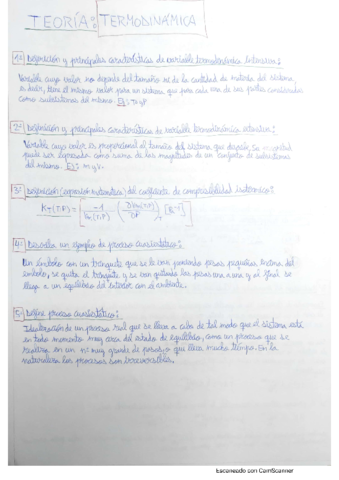 TEORÍA: TERMODINÁMICA
1- Definición y principales características de variable termodinámica intensiva:
Variable cuyo valor no depende del tamaño ni de la cantidad de materia del sistema
es decir, tiene el mismo valor para un sistema, que para cada una de sus partes consideradas
como subsistemas del mismo. Ej:
2- Definición y principales características de variable termodinámica extensiva:
Variable cuyo valor es proporcional al tamaño del sistema que describe. Su magnitud
puede ser expresada como suma de las magnitudes de un conjunto de subsistemas
del mismo. Ej: m y V.
3- Definición (expresión matemática) del coeficiente de compresibilidad isotérmico:
4- Describa un ejemplo de proceso cuasiestático:
Un émbolo con un trinquete que se le van poniendo pesas pequeñas encima del
émbolo, se quita el trinquete y se van quitando las pesas una a una y al final se
llega a un equilibrio del interior con el ambiente.
5- Define proceso cuasiestático:
Idealización de un proceso real que se lleva a cabo de tal modo que el sistema está
en todo momento muy cerca del estado de equilibrio, como un proceso que se
realiza en un nº muy grande de pasos, o que lleva mucho tiempo. En la
naturaleza los procesos son irreversibles.
Escaneado con CamScanner